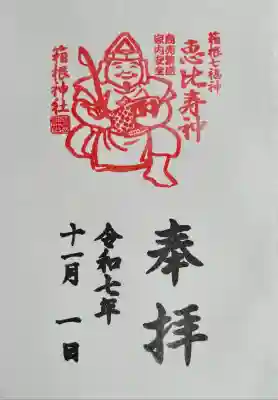 箱根七福神
恵比寿神
商売繁盛
家内安全
箱根神社
奉拝
令和七年
十一月一日